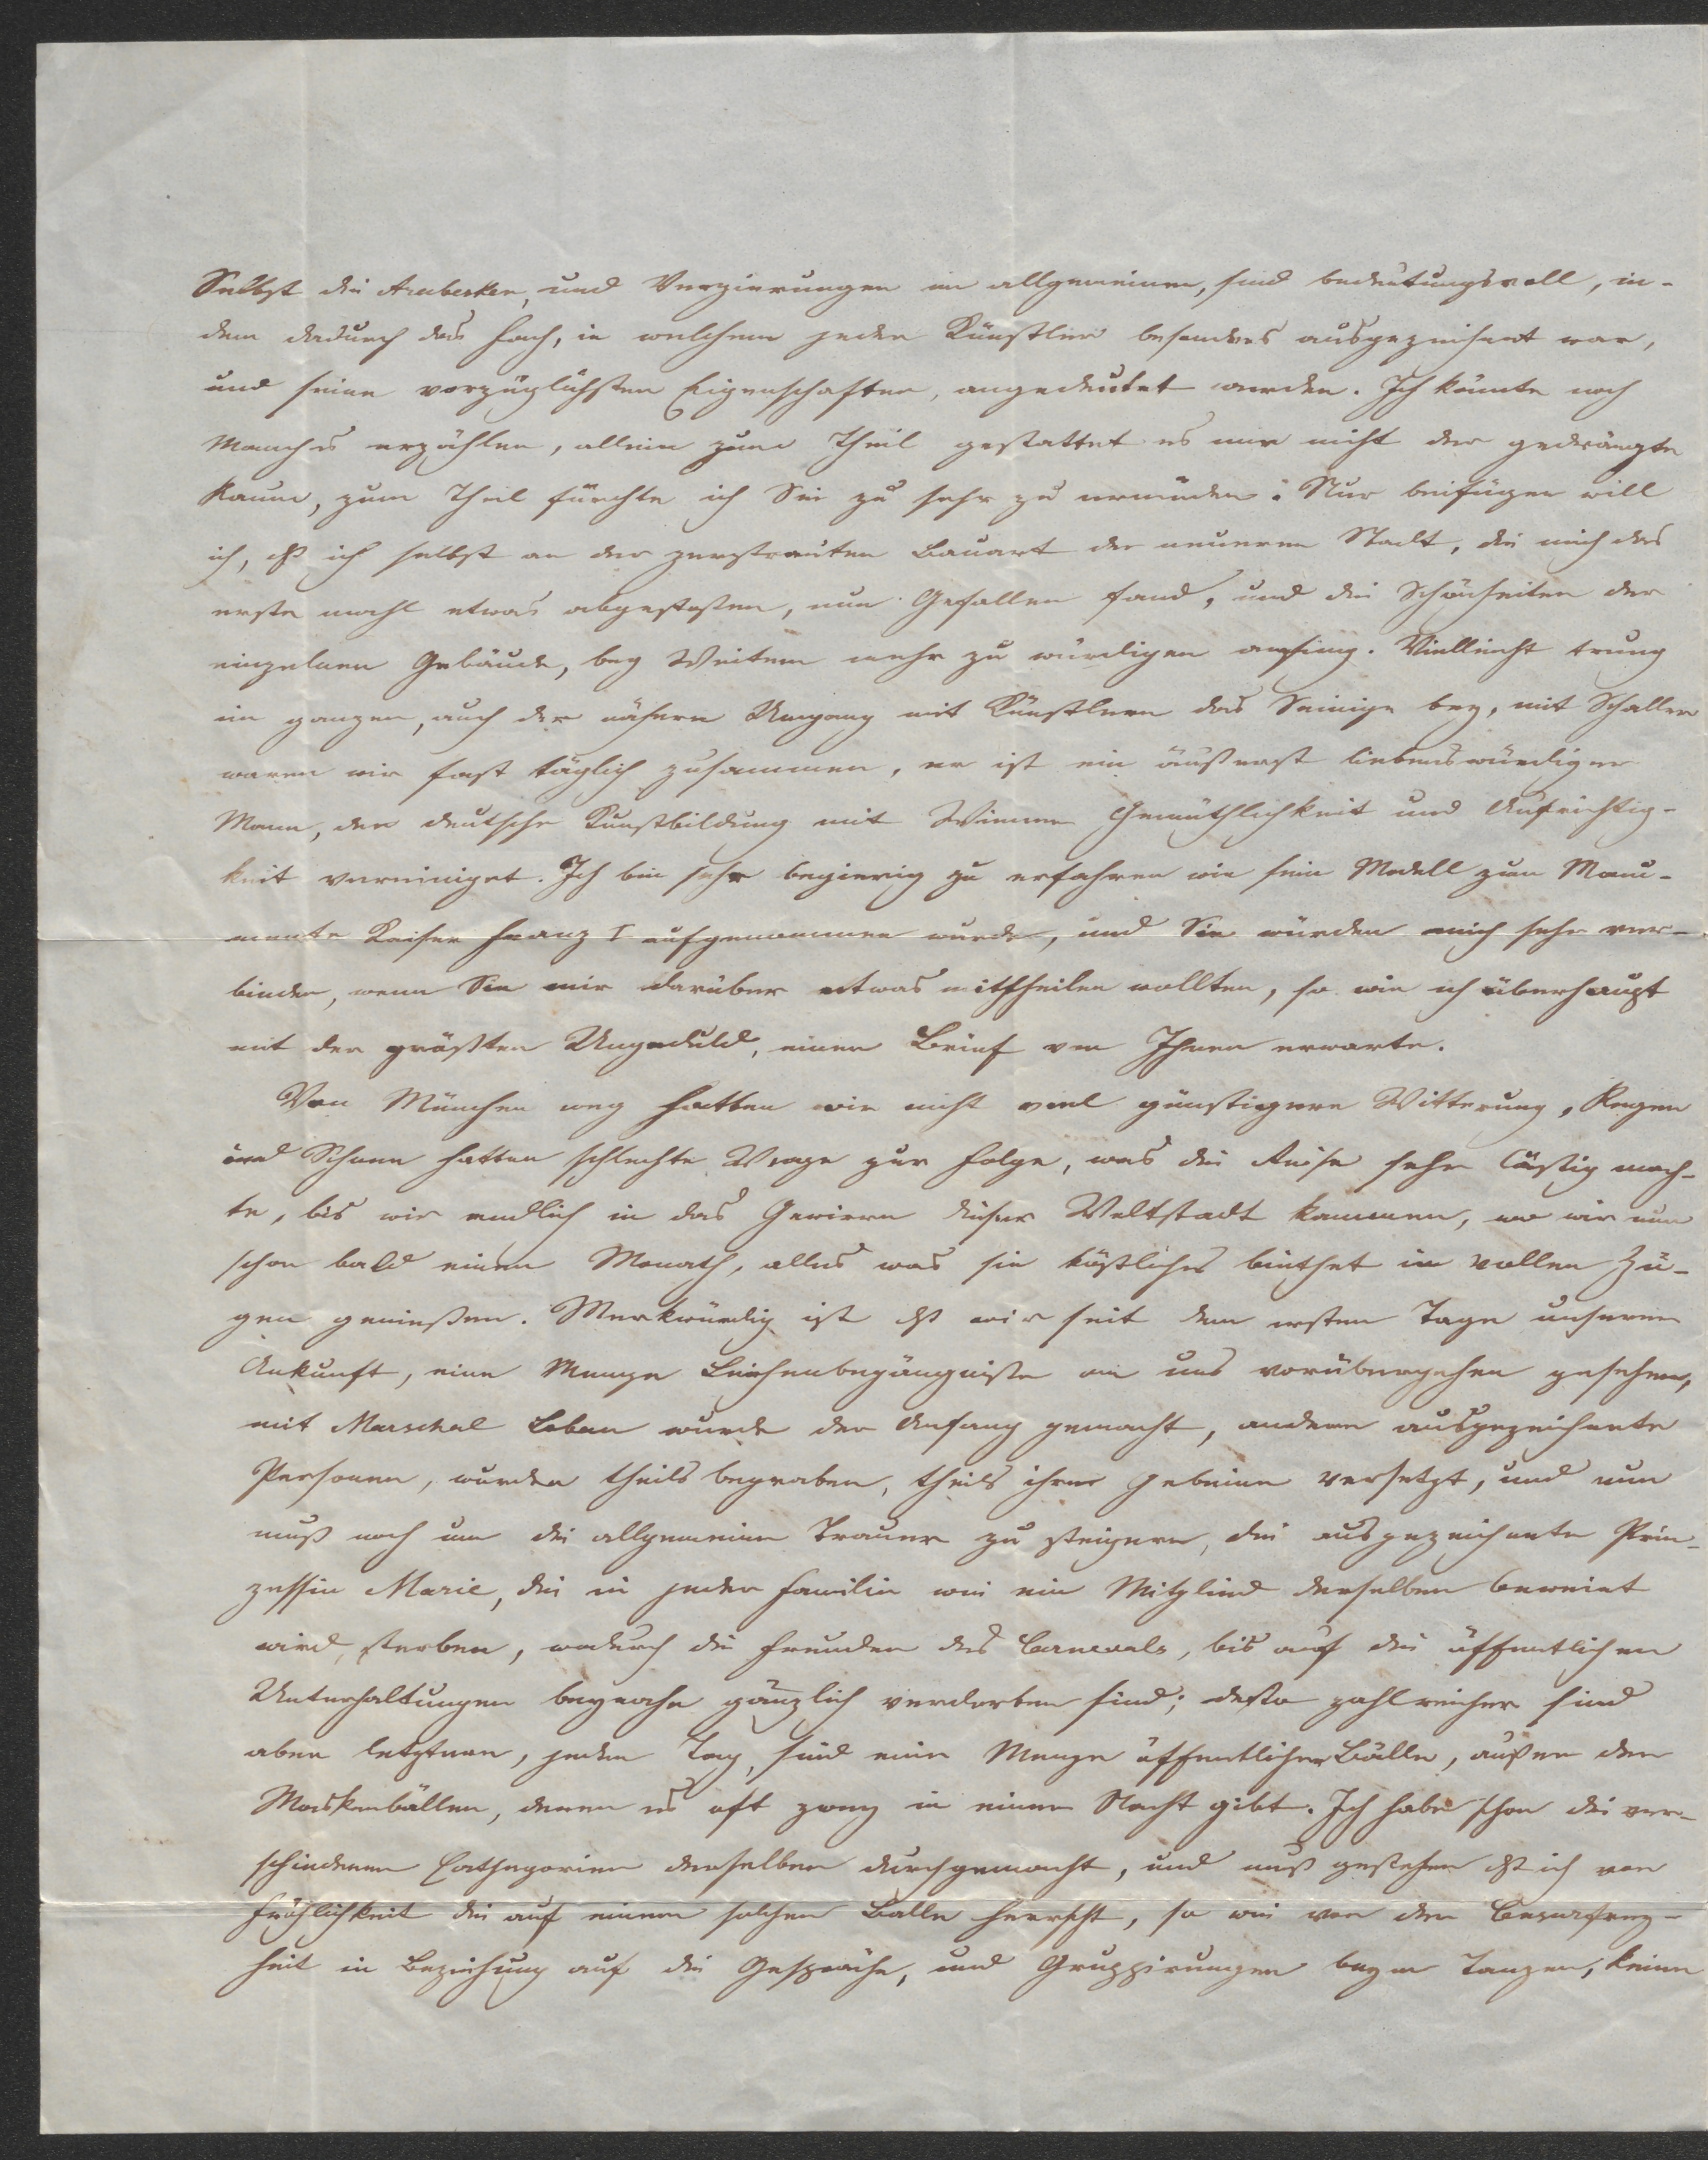 Selbst die Arabesken, und Verzierungen im allgemeinen, sind bedeutungsvoll, in-
dem dadurch das Fach, in welchem jeder Künstler besonders ausgezeichnet war,
und seine vorzüglichsten Eigenschaften, angedeutet werden. Ich könnte noch
Manches erzählen, allein zum Theil gestattet es mir nicht der gedrängte
Raum, zum Theil fürchte ich Sie zu sehr zu ermüden. Nur beifügen will
ich, dß ich selbst an der zerstreuten Bauart der neueren Stadt, die mich das
erste mahl etwas abgestoßen, nun Gefallen fand, und die Schönheiten der
einzelnen Gebäude, bey Weitem mehr zu würdigen anfing. Vielleicht trung
im ganzen, auch der nähere Umgang mit Künstlern das Seinige bey, mit Schaller
waren wir fast täglich zusammen, er ist ein äußerst liebenswürdiger
Mann, der deutsche Kunstbildung mit Wiener Gemüthlichkeit und Aufrichtig-
keit vereiniget. Ich bin sehr begierig zu erfahren wie sein Modell zum Monu-
mente Kaiser Franz I aufgenommen wurde, und Sie würden mich sehr ver-
binden, wenn Sie mir darüber etwas mittheilen wollten, so wie ich überhaupt
mit der größten Ungeduld, einen Brief von Ihnen erwarte.
Von München weg hatten wir nicht viel günstigere Witterung, Regen
und Schnee hatten schlechte Wege zur Folge, was die Reise sehr lästig mach-
te, bis wir endlich in das Gewirre dieser Weltstadt kammen, wo wir nun
schon bald einen Monath, alles was sie köstliches biethet in vollen Zü-
gen genießen. Merkwürdig ist dß wir seit dem ersten Tage unserer
Ankunft, eine Menge Leichenbegängniße an uns vorübergehen gesehen,
mit Marschal Loban wurde der Anfang gemacht, andere ausgezeichnete
Personen, wurden theils begraben, theils ihre Gebeine versetzt, und nun
muß noch um die allgemeine Trauer zu steigern, die ausgezeichnete Prin-
zessin Marie, die in jeder Familie wie ein Mitglied derselben beweint
wird, sterben, wodurch die Freuden des Carnevals, bis auf die öffentlichen
Unterhaltungen beynahe gänzlich verdorben sind; desto zahlreicher sind
aber letztere, jeden Tag, sind eine Menge öffentlicher Bälle, außer den
Maskenbällen, deren es oft zwey in einer Nacht gibt. Ich habe schon die ver-
schiedenen Cathegorien derselben durchgemacht, und muß gestehen dß ich von
Fröhlichkeit die auf einem solchen Balle herrscht, so wie von der
heit in Beziehung auf die Gespräche, und Gruppirungen beym Tanzen, keinen